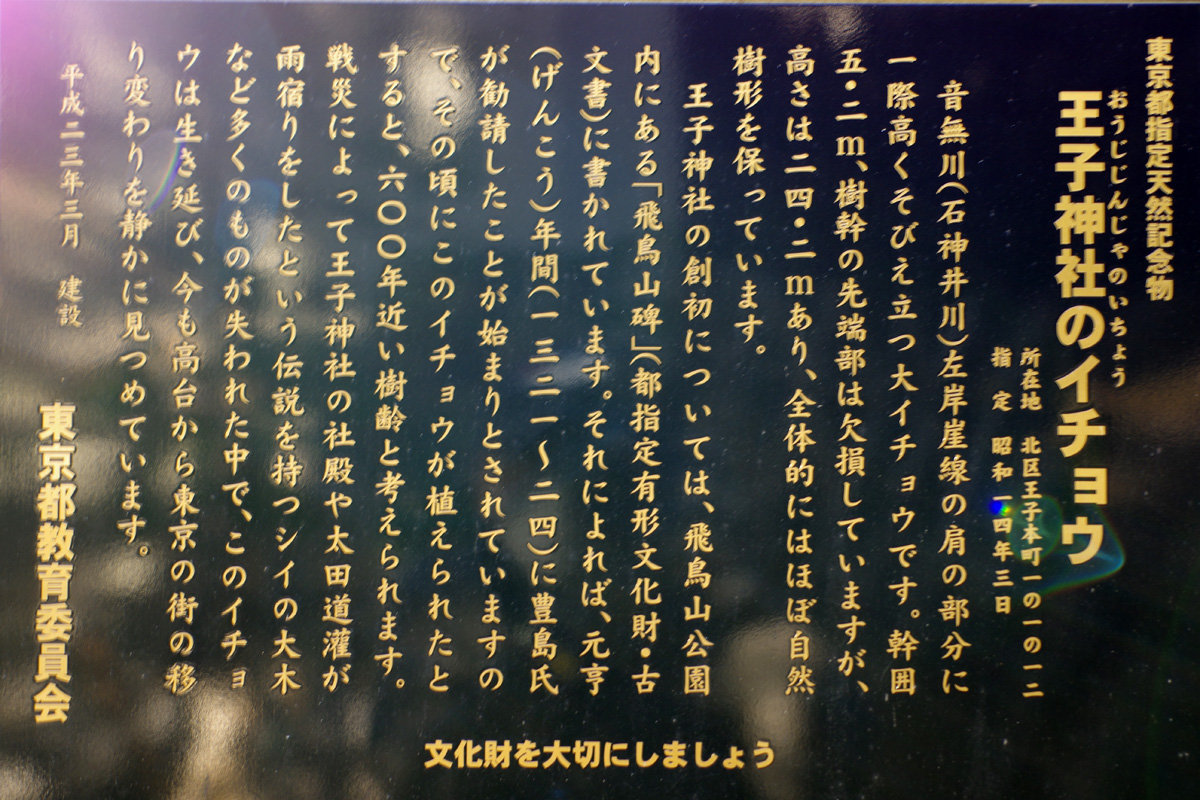 東京都指定天然記念物
おうじじんじゃのいちょう
王子神社のイチョウ
所在地 北区王子本町一の一の一二
指 定 昭和一四年三日
音無川(石神井川)左岸崖線の肩の部分に
一際高くそびえ立つ大イチョウです。幹囲
五・二m、樹幹の先端部は欠損していますが、
高さは二四・二mあり、全体的にはほぼ自然
樹形を保っています。
王子神社の創初については、飛鳥山公園
内にある「飛鳥山碑」(都指定有形文化財・古
文書)に書かれています。それによれば、元亨
(げんこう)年間(一三二一〜二四)に豊島氏
が勧請したことが始まりとされていますの
で、その頃にこのイチョウが植えられたと
すると、六〇〇年近い樹齢と考えられます。
戦災によって王子神社の社殿や太田道灌が
雨宿りをしたという伝説を持つシイの大木
など多くのものが失われた中で、このイチョ
ウは生き延び、今も高台から東京の街の移
り変わりを静かに見つめています。
平成二三年三月 建設
東京都教育委員会
文化財を大切にしましょう